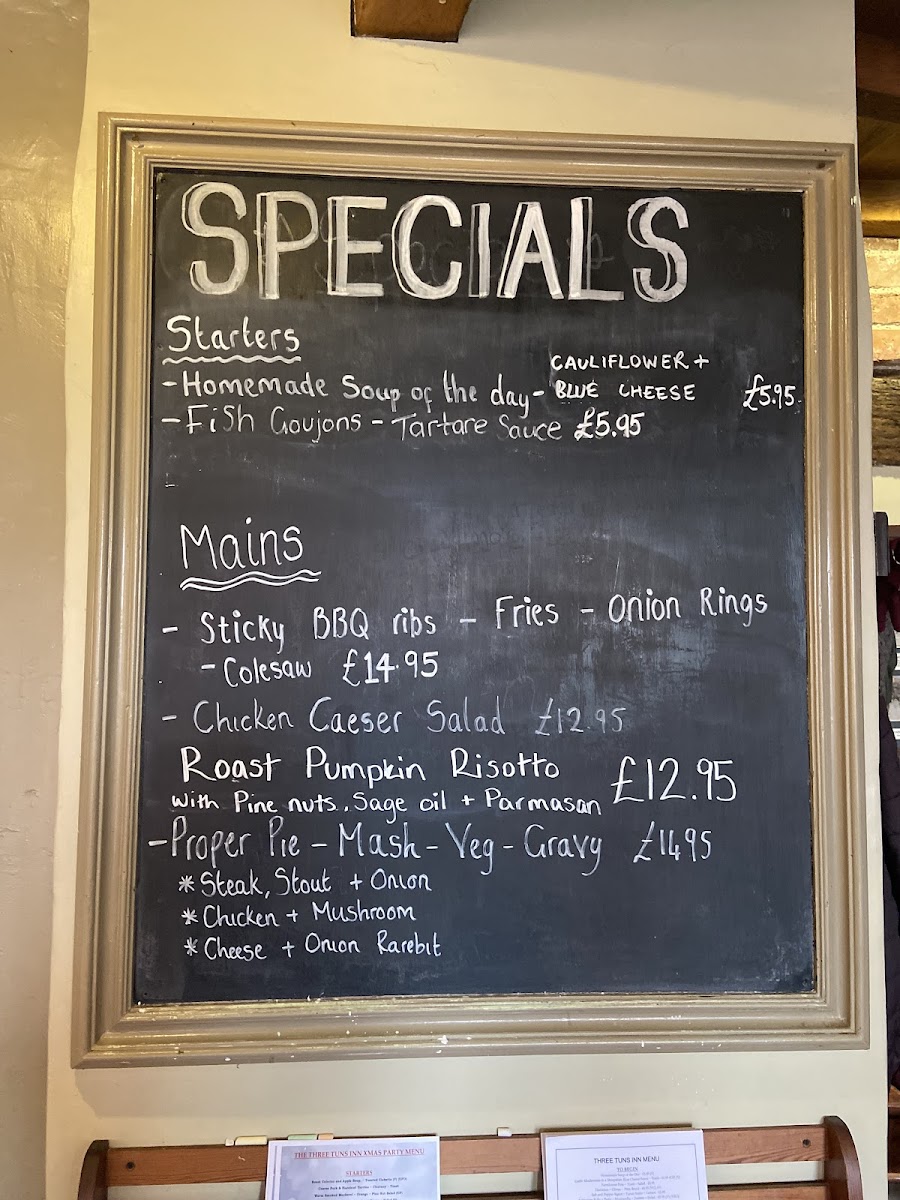 SPECIALS
Starters
- Homemade Soup of the day - CAULIFLOWER + BLUE CHEESE £5.95
- Fish Goujons - Tartare Sauce £5.95
-
Mains
- Sticky BBQ ribs - Fries - Onion Rings
- Colesaw £14.95
- Chicken Caeser Salad £12.95
Roast Pumpkin Risotto £12.95
with Pine nuts, Sage oil + Parmasan
- Proper Pie - Mash - Veg - Gravy £14.95
* Steak, Stout + Onion
* Chicken + Mushroom
* Cheese + Onion Rarebit
THE THREE TUNS INN XMAS PARTY MENU
STARTERS
THREE TUNS INN MENU
TO BEGIN